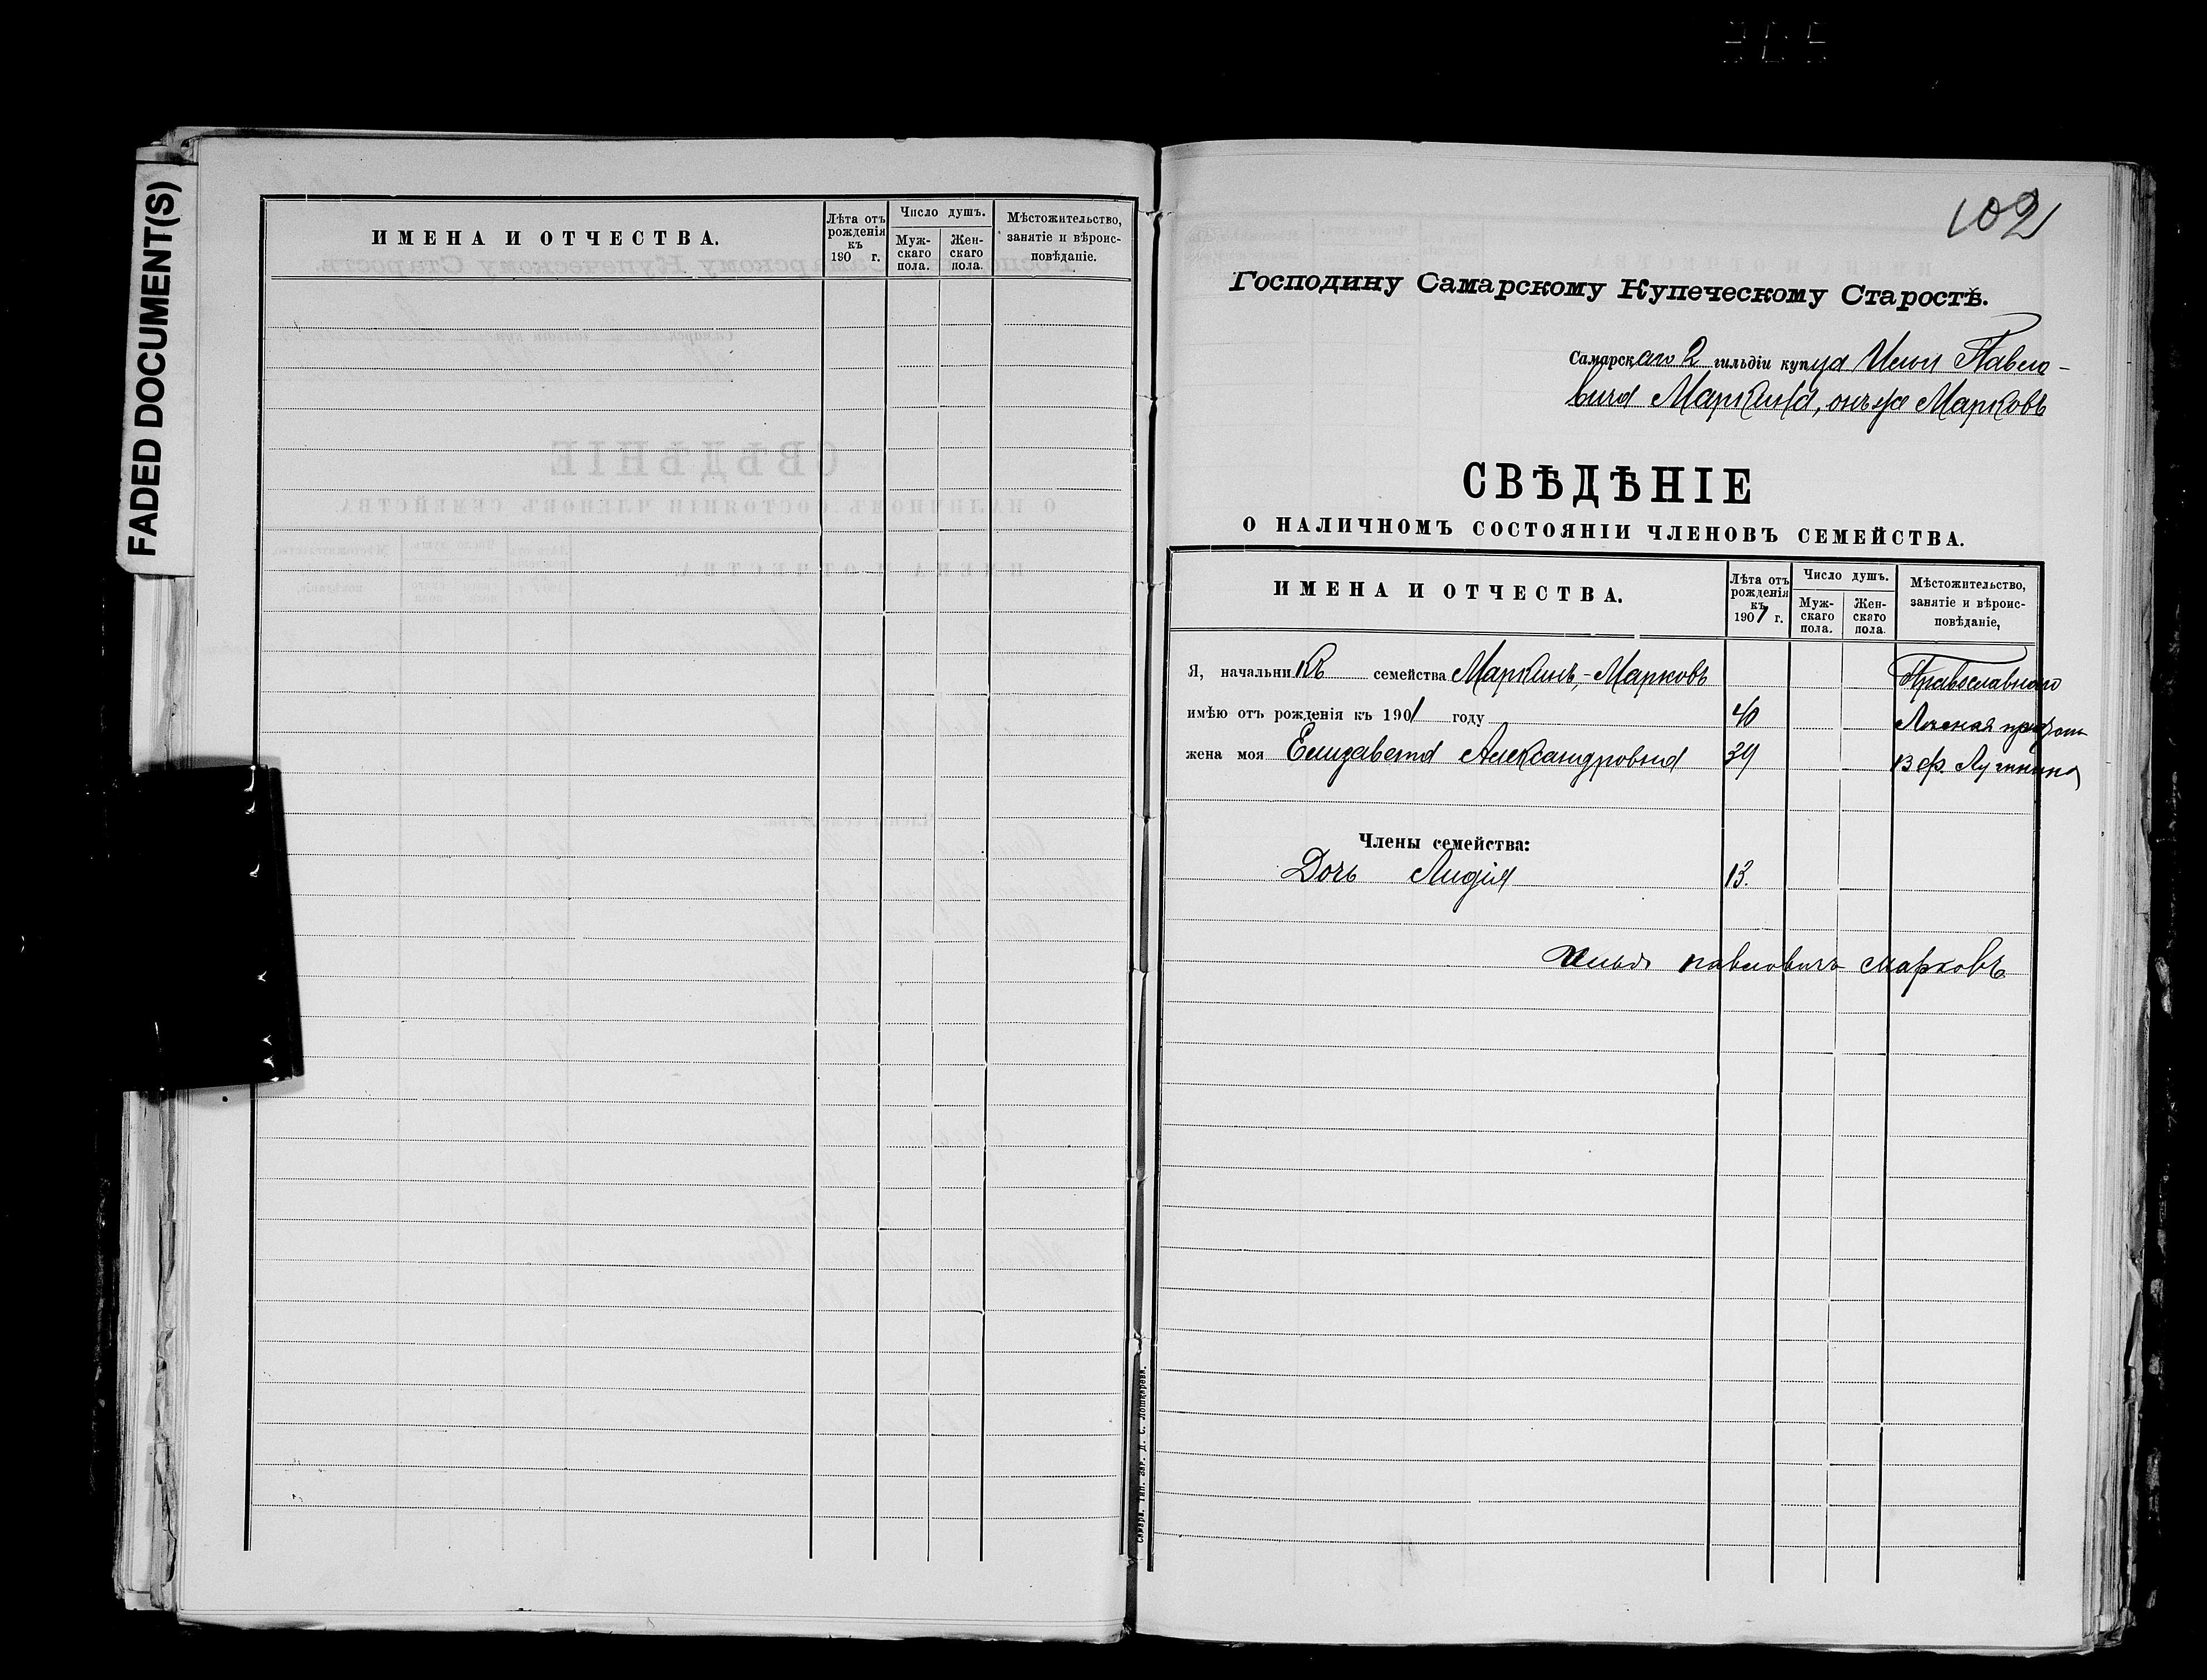 FADED DOCUMENT(S)
ИМЕНА И ОТЧЕСТВА.
Лѣта отъ рожденія къ 190 г.
Число душъ.
Муж- скаго пола.
Жен- скаго пола.
Мѣстожительство, занятіе и вѣроис- повѣданіе.
102
Господину Самарскому Купеческому Старостѣ.
Самарскаго 2 гильдіи купца Ильи Павло-
вича Маркина, онъ же Марковъ
СВѢДѢНІЕ
О НАЛИЧНОМЪ СОСТОЯНІИ ЧЛЕНОВЪ СЕМЕЙСТВА.
ИМЕНА И ОТЧЕСТВА.
Лѣта отъ рожденія къ 1901 г.
Число душъ.
Муж- скаго пола.
Жен- скаго пола.
Мѣстожительство, занятіе и вѣроис- повѣданіе,
Я, начальникъ семейства Маркинъ,-Марковъ Православнаго
имѣю отъ рожденія къ 1901 году 40 Лѣсная
жена моя Елизавета Александровна 39
Члены семейства:
Дочь Лидія 13.
Илья павловичъ марковъ
Самара. Тип. Д. С. Лошкарева.